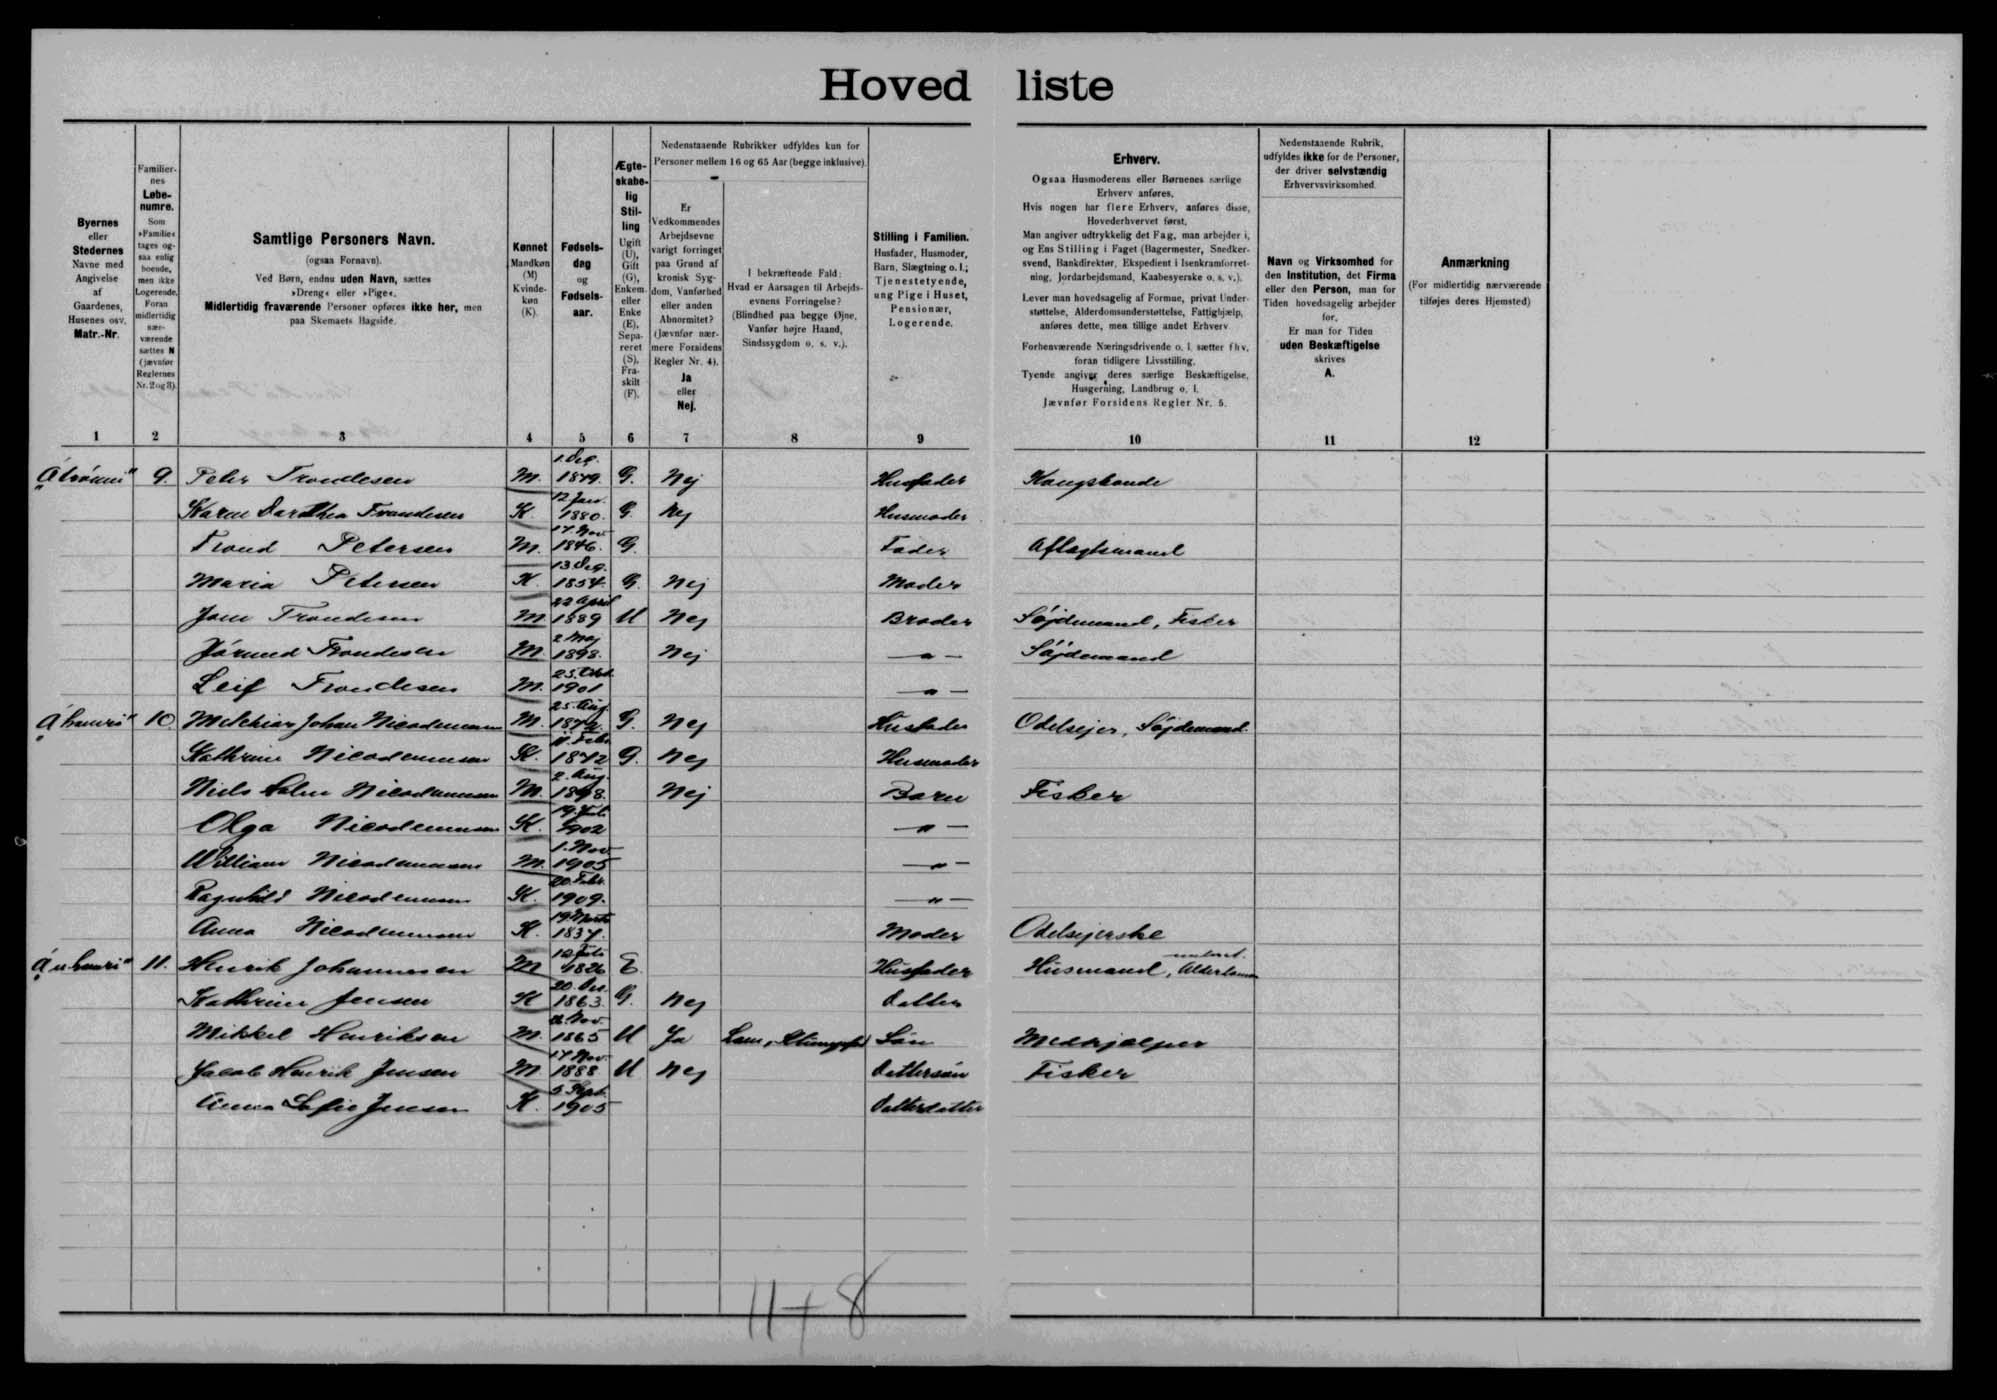 Hoved liste
Byernes
eller
Stedernes
Navne med
Angivelse
af
Gaardenes,
Husenes osv.
Matr.-Nr.
Familier-
nes
Løbe-
numre.
Som
»Familie«
tages og-
saa enlig
boende,
men ikke
Logerende.
Foran
midlertidig
nær-
værende
sættes N
(jævnfør
Reglernes
Nr. 2 og 3).
Samtlige Personers Navn.
(ogsaa Fornavn).
Ved Børn, endnu uden Navn, sættes
»Dreng« eller »Pige«.
Midlertidig fraværende Personer opføres ikke her, men
paa Skemaets Bagside.
Kønnet
Mandkøn
(M)
Kvinde-
køn
(K).
Fødsels-
dag
og
Fødsels-
aar.
Ægte-
skabe-
lig
Stil-
ling
Ugift
(U),
Gift
(G),
Enkem.
eller
Enke
(E),
Sepa-
reret
(S),
Fra-
skilt
(F).
Nedenstaaende Rubrikker udfyldes kun for
Personer mellem 16 og 65 Aar (begge inklusive).
Er
Vedkommendes
Arbejdsevne
varigt forringet
paa Grund af
kronisk Syg-
dom, Vanførhed
eller anden
Abnormitet?
(Jævnfør nær-
mere Forsidens
Regler Nr. 4).
Ja
eller
Nej.
I bekræftende Fald:
Hvad er Aarsagen til Arbejds-
evnens Forringelse?
(Blindhed paa begge Øjne,
Vanfør højre Haand,
Sindssygdom o. s. v.).
Stilling i Familien.
Husfader, Husmoder,
Barn, Slægtning o. l.;
Tjenestetyende,
ung Pige i Huset,
Pensionær,
Logerende.
Erhverv.
Ogsaa Husmoderens eller Børnenes særlige
Erhverv anføres.
Hvis nogen har flere Erhverv, anføres disse,
Hovederhvervet først.
Man angiver udtrykkelig det Fag, man arbejder i,
og Ens Stilling i Faget (Bagermester, Snedker-
svend, Bankdirektør, Ekspedient i Isenkramforret-
ning, Jordarbejdsmand, Kaabesyerske o. s. v.).
Lever man hovedsagelig af Formue, privat Under-
støttelse, Alderdomsunderstøttelse, Fattighjælp,
anføres dette, men tillige andet Erhverv.
Forhenværende Næringsdrivende o. l. sætter fhv.
foran tidligere Livsstilling.
Tyende angiver deres særlige Beskæftigelse,
Husgerning, Landbrug o. l.
Jævnfør Forsidens Regler Nr. 5.
Nedenstaaende Rubrik,
udfyldes ikke for de Personer,
der driver selvstændig
Erhvervsvirksomhed.
Navn og Virksomhed for
den Institution, det Firma
eller den Person, man for
Tiden hovedsagelig arbejder
for.
Er man for Tiden
uden Beskæftigelse
skrives
A.
Anmærkning
(For midlertidig nærværende
tilføjes deres Hjemsted)
1 2 3 4 5 6 7 8 9 10 11 12
9. Peter Trondesen M. 1. Dec. 1879. G. Nej Husfader Kongsbonde
Karen Darathea Trondesen K. 12 Jan. 1880. G. Nej Husmoder
Trond Petersen M. 17. Nov 1846. G. Fader Aftagtsmand
Maria Petersen K. 13 Dec. 1854. G. Nej Moder
Joen Trondesen M. 22 April 1889 U Nej Broder Søjdemand, Fisker
Jórund Trondesen M. 2 Maj 1898. Nej — " — Søjdemand
Leif Trondesen M. 1901 — " —
10. Melchior Johan Nicodemussen M. 25. Aug. G. Nej Husfader Odelsejer, Søjdemand.
Kathrine Nicodemussen K. 1872 G. Nej Husmoder
Niels Nicodemussen M. 2. Aug. 1898. Nej Barn Fisker
Olga Nicodemussen K. 1902 — " —
William Nicodemussen M. 1. Nov. 1905 — " —
Ragnhild Nicodemussen K. 20. Febr. 1909. — " —
Anna Nicodemussen K. 19. Marts 1837. Moder Odelsejerske
11. Henrik Johannesen M 1826 E. Husfader Husmand,
Kathrine Jensen K 20. Dec. 1863. G. Nej Datter
Mikkel Henriksen M. Nov. 1865 U Ja Lam, Søn Medhjælper
Jacob Henrik Jensen M 17 Nov. 1888 U Nej Dattersøn Fisker
Anna Sofie Jensen K. 5 Sept. 1905 Datterdatter
11 + 8